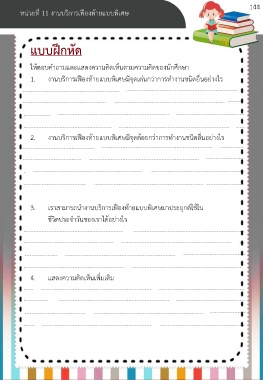 หน่วยที่ 11 งานบริการเฟืองท้ายแบบพิเศษ
144
แบบฝึกหัด
ให้ตอบคำถามและแสดงความคิดเห็นตามความคิดของนักศึกษา
1. งานบริการเฟืองท้ายแบบพิเศษมีจุดเด่นกว่าการทำงานชนิดอื่นอย่างไร
2. งานบริการเฟืองท้ายแบบพิเศษมีจุดด้อยกว่าการทำงานชนิดอื่นอย่างไร
3. เราสามารถนำงานบริการเฟืองท้ายแบบพิเศษมาประยุกต์ใช้ใน
ชีวิตประจำวันของเราได้อย่างไร
4. แสดงความคิดเห็นเพิ่มเติม